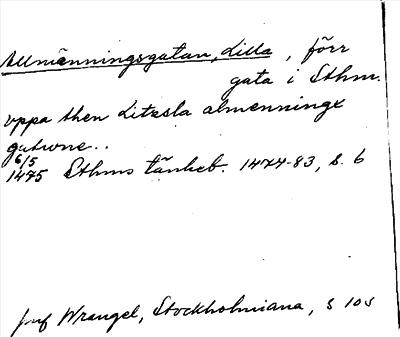 Allmänningsgatan, Lilla, förr
gata i Sthm.
vppa then litzsla almenningx
gatwne..
6/5
1475 Sthms tänkeb. 1474-83, s. 6
jmf Wrangel, Stockholmiana, s 105